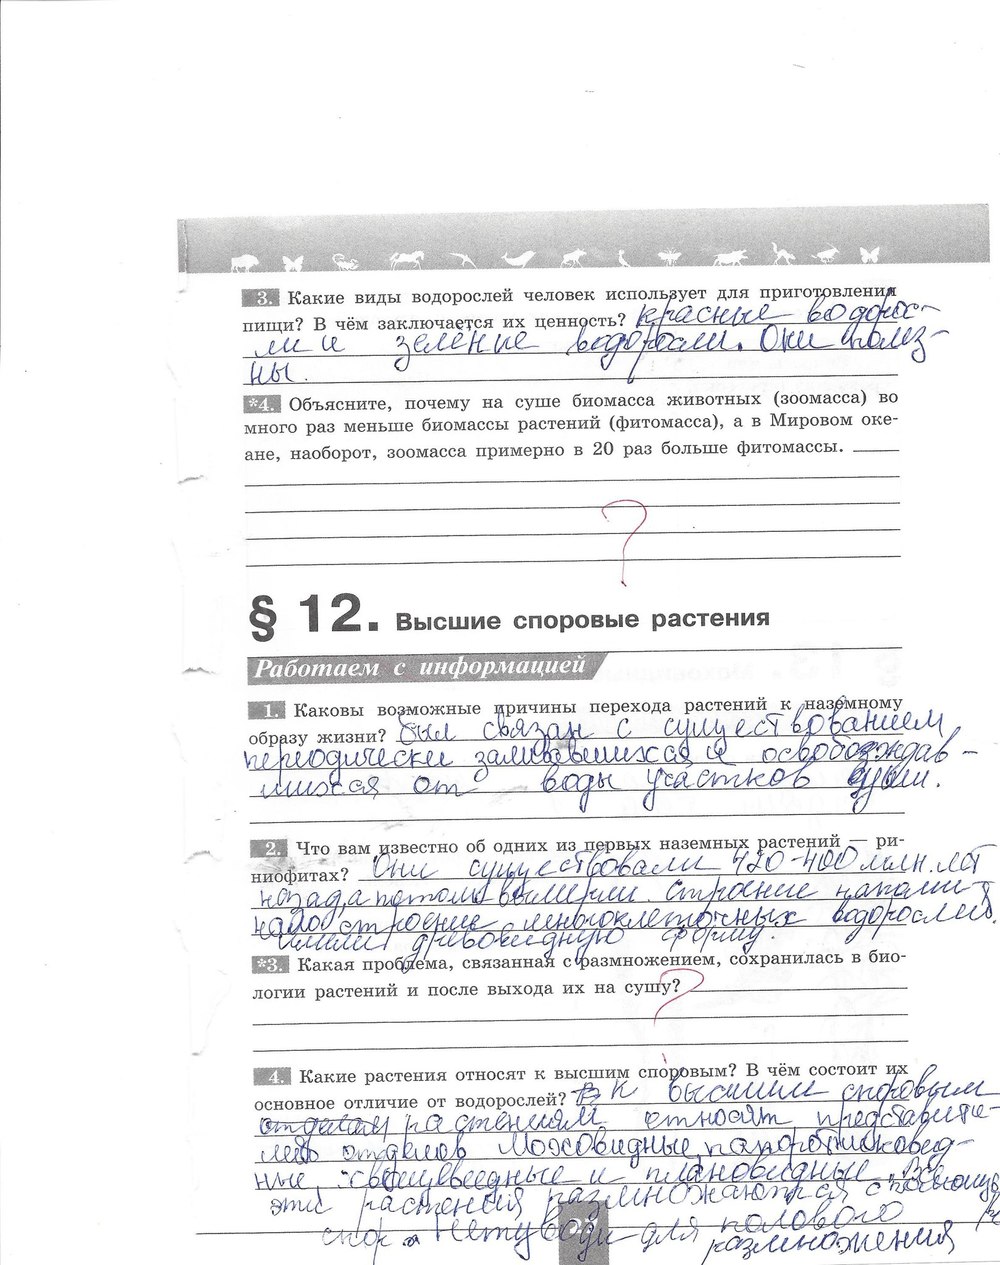 3. Какие виды водорослей человек использует для приготовления
пищи? В чём заключается их ценность? красные водорос-
ли и зелёные водоросли. Они полез-
ны.
*4. Объясните, почему на суше биомасса животных (зоомасса) во
много раз меньше биомассы растений (фитомасса), а в Мировом оке-
ане, наоборот, зоомасса примерно в 20 раз больше фитомассы.
?
§ 12. Высшие споровые растения
Работаем с информацией
1. Каковы возможные причины перехода растений к наземному
образу жизни? Был связан с существованием
периодически заливавшихся и освобождав-
шихся от воды участков суши.
2. Что вам известно об одних из первых наземных растений — ри-
ниофитах? Они существовали 420-400 млн. лет
назад, потом вымерли. Строение напоми-
нало строение многоклеточных водорослей.
имели древовидную форму.
*3. Какая проблема, связанная с размножением, сохранилась в био-
логии растений и после выхода их на сушу?
?
4. Какие растения относят к высшим споровым? В чём состоит их
основное отличие от водорослей? К высшим споровым
растениям относят представите-
лей отделов Моховидные, папоротниковид-
ные, хвощевидные и плауновидные. Все
эти растения размножаются с помощью
спор. Нет воды для полового
размножения